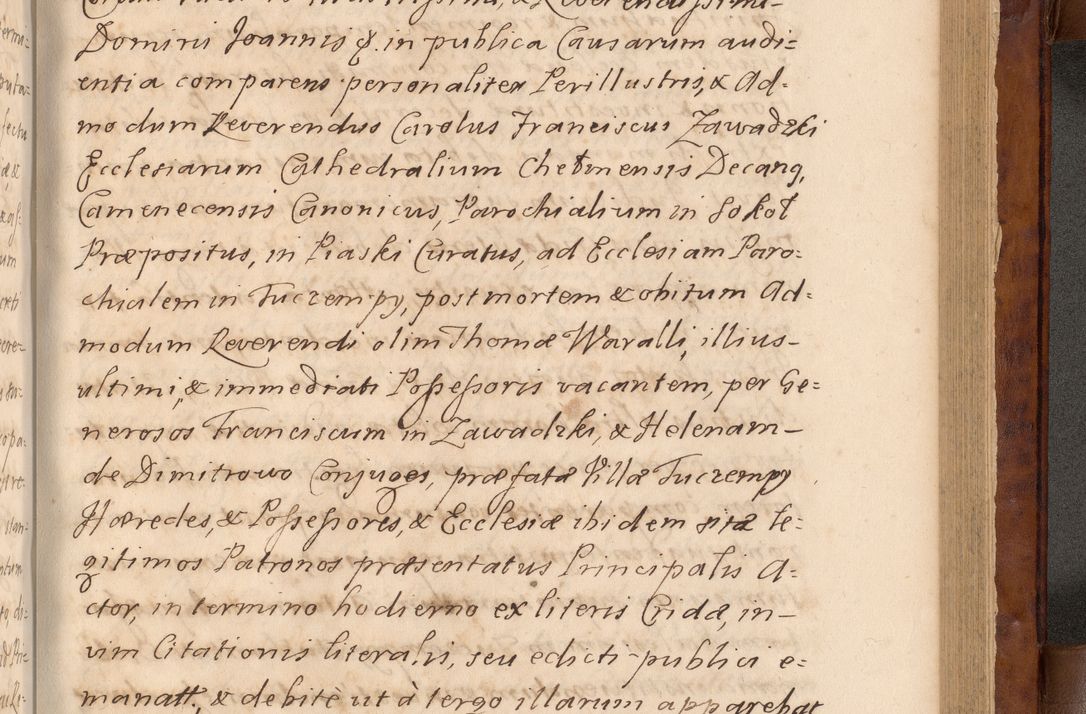 Domini Joannis &. in publica Causarum audi=
entia comparens personaliter Perillustris, & Ad-
modum Reverendus Carolus Franciscus Zawadzki
Ecclesiarum Cathedralium Chełmensis Decanq,
Camenecensis Canonicus, Parochialium in Sokoł
Præpositus, in Piaski Curatus, ad Ecclesiam Paro=
chialem in Tuczempy, post mortem & obitum Ad=
modum Reverendi olim Thomæ Waralli, illius-
ultimi, & immediati Possessoris vacantem, per Ge=
nerosos Franciscum in Zawadzki, & Helenam-
de Dimitrowo Conjuges, præfatæ Villæ Tuczempy
Hæredes, & Possessores, & Ecclesiæ ibidem sitæ le=
gitimos Patronos præsentatus Principalis A=
ctor, in termino hodierno ex literis Cridæ, in-
vim Citationis literalis, seu edicti publici e=
manatt., & debitè ut à tergo illarum apparebat